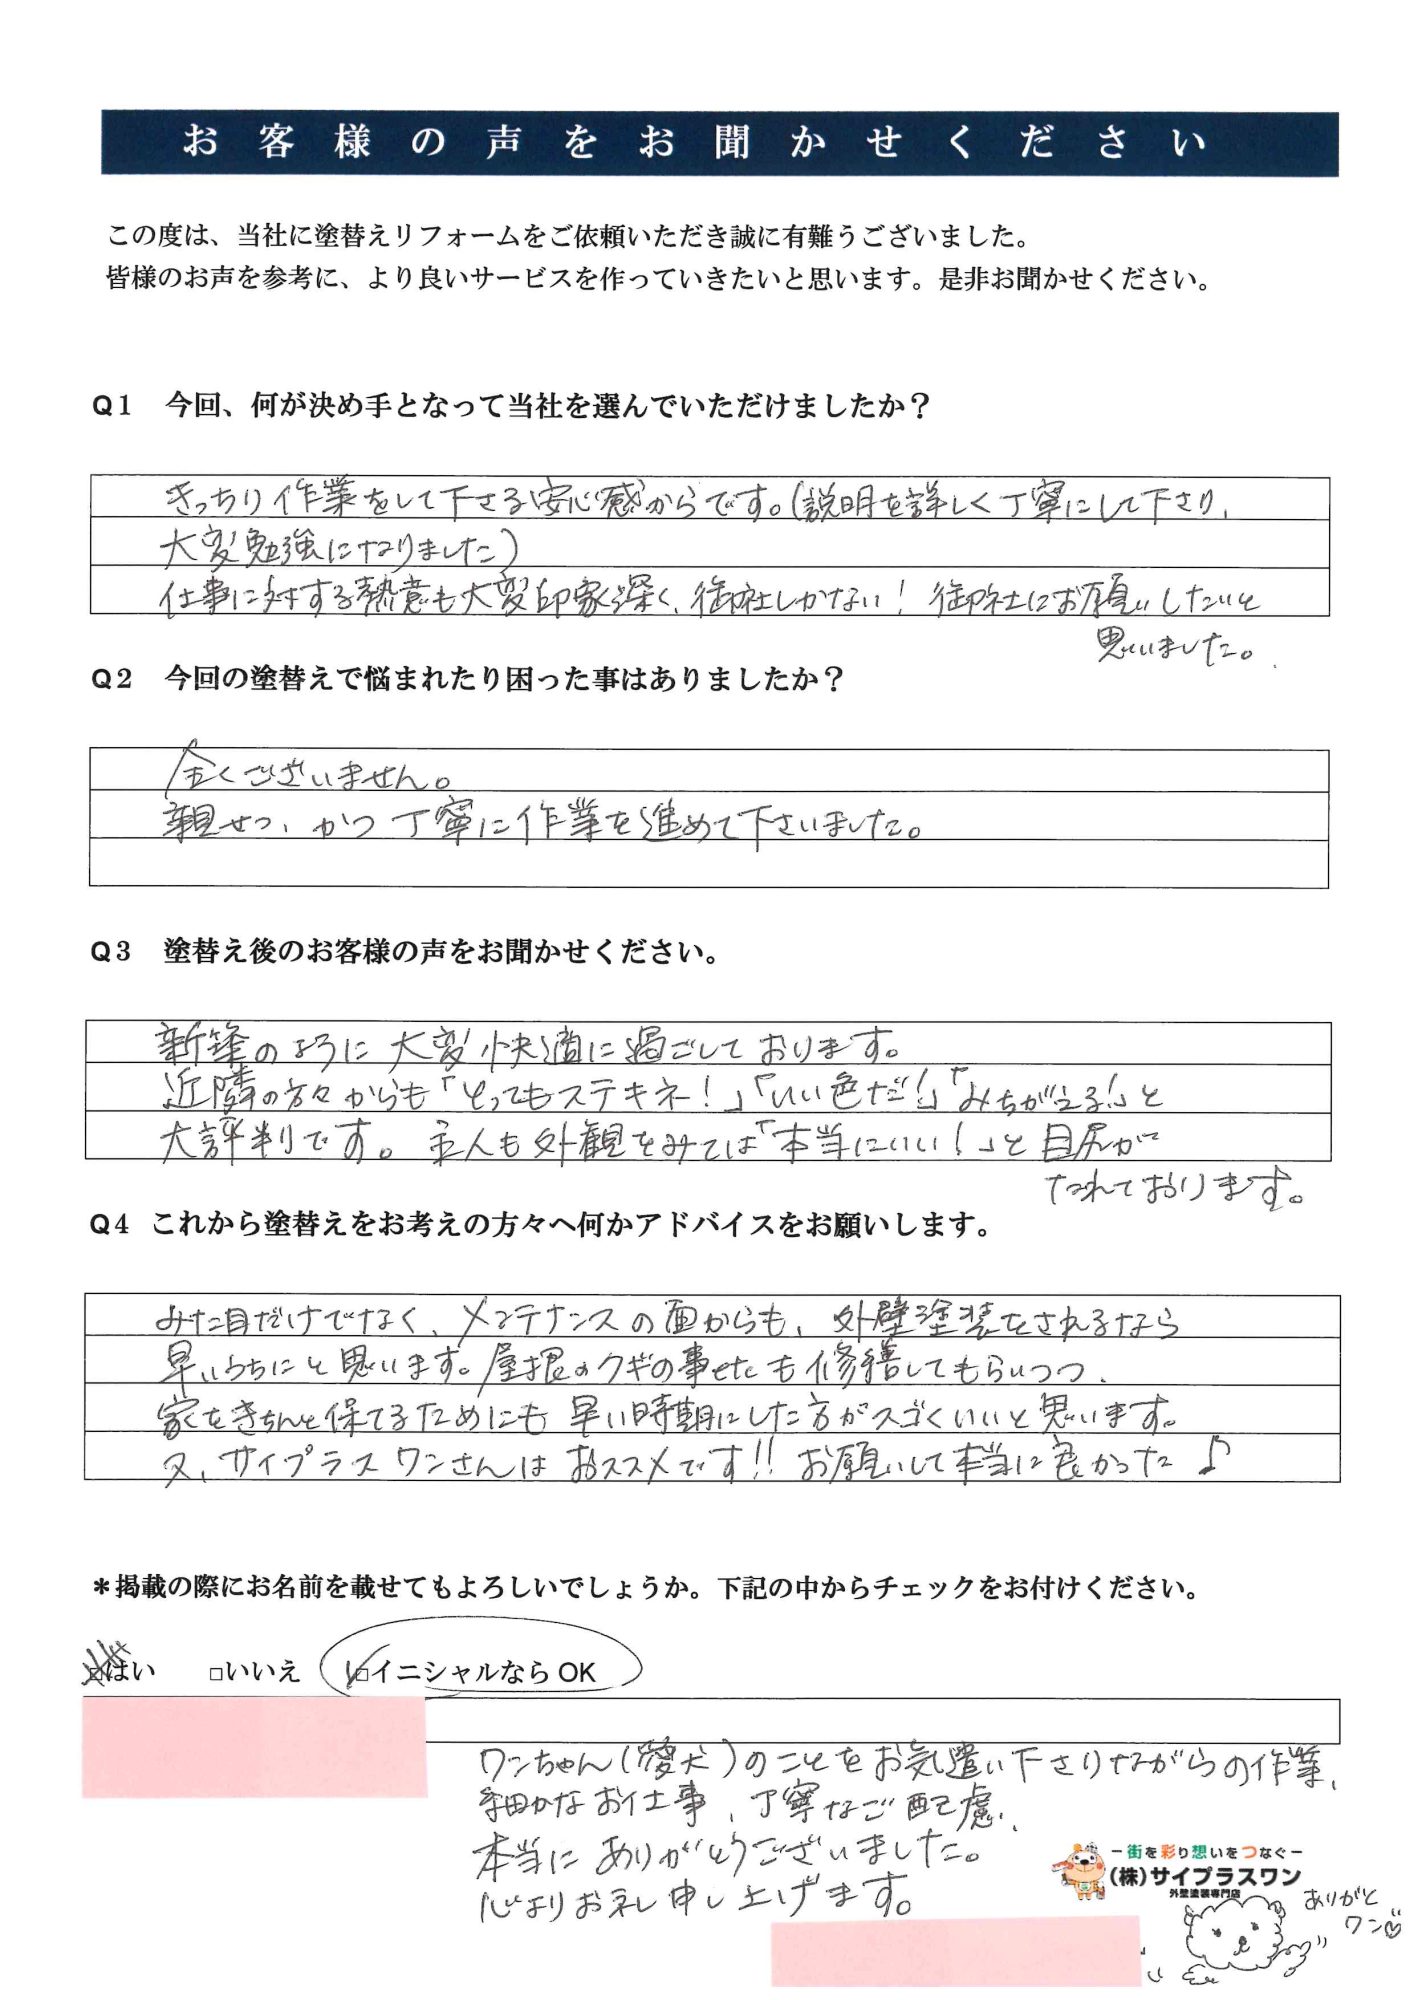 お客様の声をお聞かせください
この度は、当社に塗替えリフォームをご依頼いただき誠に有難うございました。
皆様のお声を参考に、より良いサービスを作っていきたいと思います。是非お聞かせください。
Q1　今回、何が決め手となって当社を選んでいただけましたか？
きっちり作業をして下さる安心感からです。(説明を詳しく丁寧にして下さり、
大変勉強になりました)
仕事に対する熱意も大変印象深く、御社しかない！御社にお願いしたいと
思いました。
Q2　今回の塗替えで悩まれたり困った事はありましたか？
全くございません。
親せつ、かつ丁寧に作業を進めて下さいました。
Q3　塗替え後のお客様の声をお聞かせください。
新築のように大変快適に過ごしております。
近隣の方々からも「とってもステキネ！」「いい色だ！」「みちがえる！」と
大評判です。主人も外観をみては「本当にいい！」と目尻が
たれております。
Q4 これから塗替えをお考えの方々へ何かアドバイスをお願いします。
みた目だけでなく、メンテナンスの面からも、外壁塗装をされるなら
早いうちにと思います。屋根のクギの事etcも修繕してもらいつつ、
家をきちんと保てるためにも早い時期にした方がスゴくいいと思います。
又、サイプラスワンさんはおススメです!! お願いして本当に良かった♪
＊掲載の際にお名前を載せてもよろしいでしょうか。下記の中からチェックをお付けください。
□はい　□いいえ　☑イニシャルなら OK
ワンちゃん(愛犬)のことをお気遣い下さりながらの作業、
細かなお仕事、丁寧なご配慮、
本当にありがとうございました。
心よりお礼申し上げます。
－街を彩り想いをつなぐ－
(株)サイプラスワン
外壁塗装専門店
ありがと
ワン♡